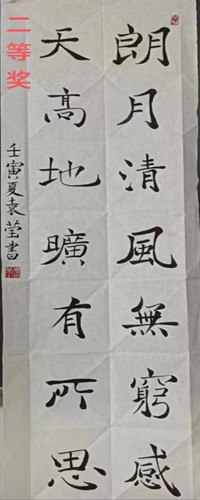 朗月清風無窮感
天高地曠有所思
壬寅夏袁莹書
二等奖